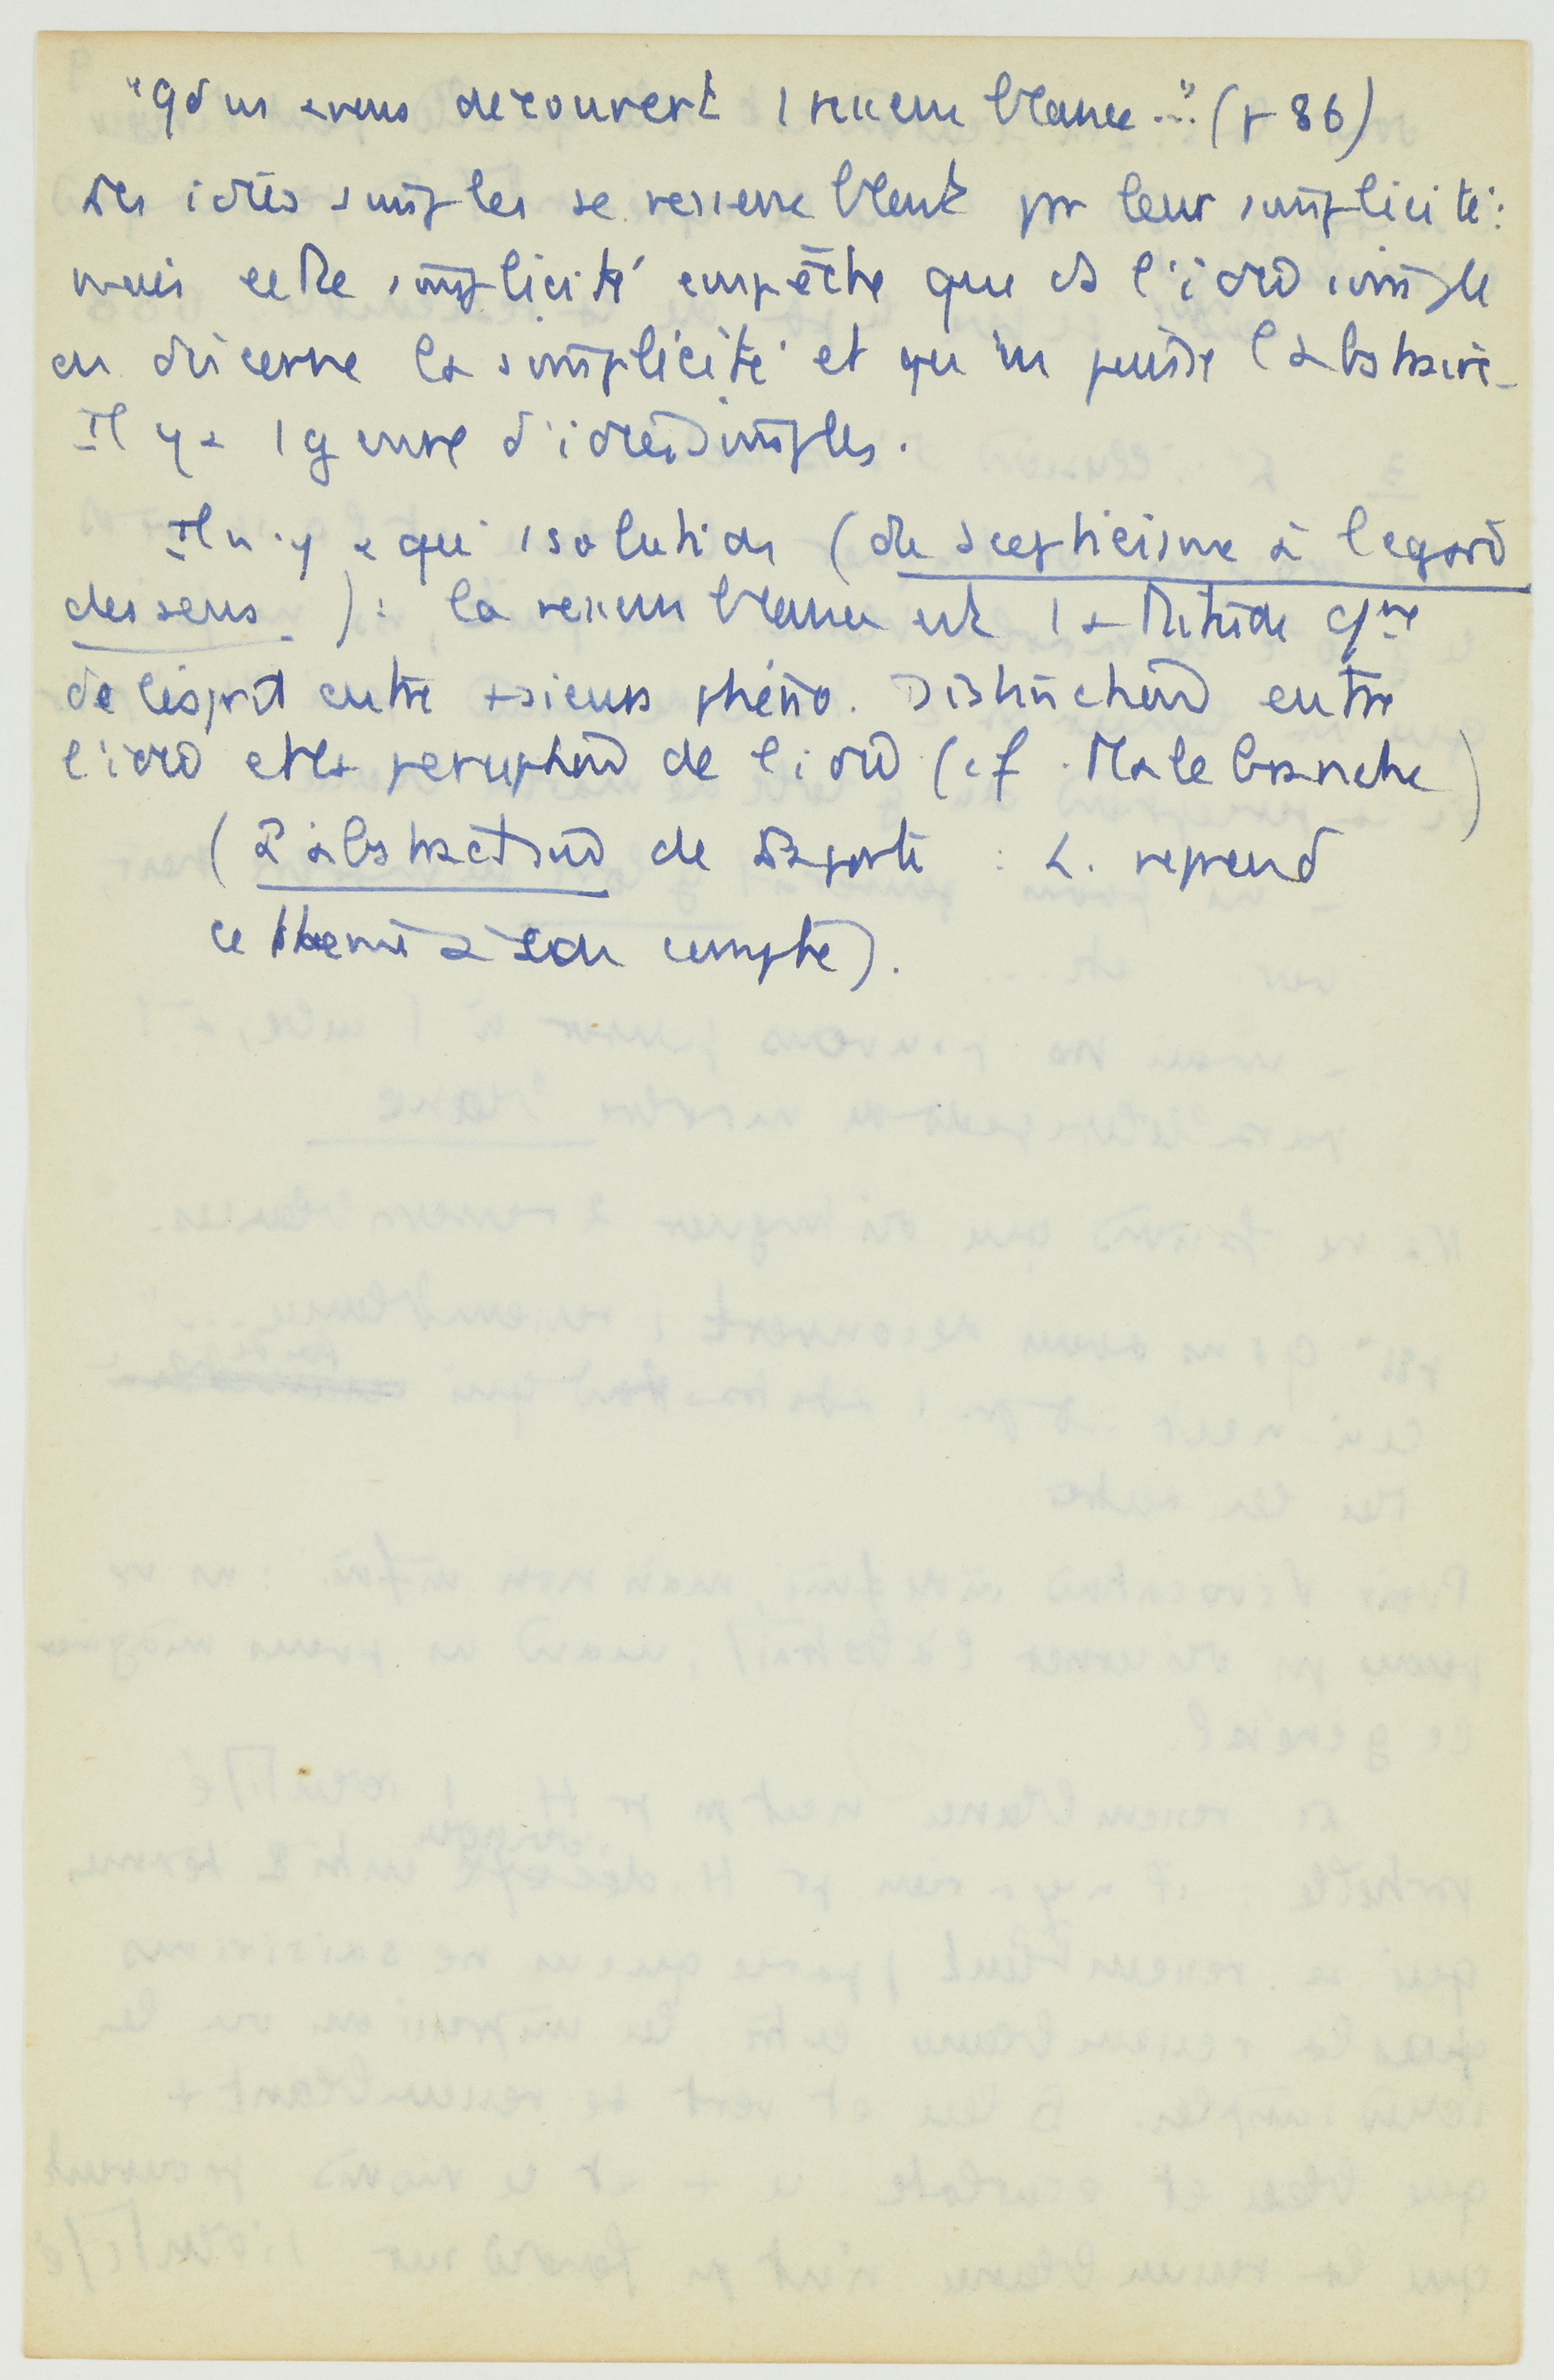 "Qd ns avons découvert 1 ressemblance..." (p 86)
Des idées simples se ressemblent par leur simplicité:
mais cette simplicité empêche que ds l'idée simple
on discerne la simplicité et qu'on puisse l'abstraire.
Il y a 1 genre d'idées simples.
Il n'y a qu'1 solution (du scepticisme à l'égard
des sens.): la ressemblance est 1 attitude
de l'esprit entre +sieurs phéno. Distinction entre
l'idée et la perception de l'idée (cf. Malebranche)
(L'abstraction de Laporte : L. reprend
ce thème à son compte).